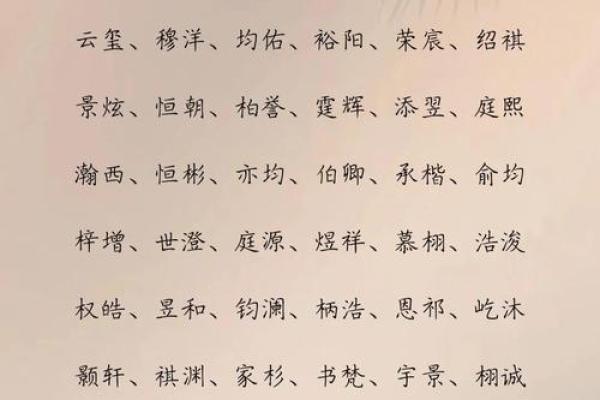 云玺、穆洋、均佑、裕阳、荣宸、绍祺
景炫、恒朝、柏誉、霆辉、添翌、庭熙
瀚西、恒彬、亦均、伯卿、承楷、俞均
梓增、世澄、庭源、煜祥、慕栩、浩浚
权皓、昱和、钧澜、柄浩、恩祁、屹沐
颢轩、祺渊、家杉、书梵、宇景、栩诚